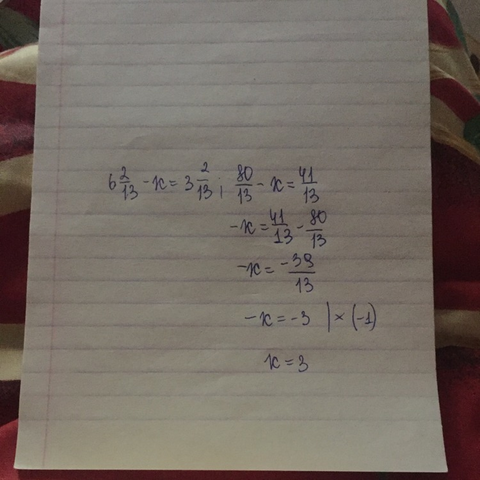 6 2/13 - x = 3 2/13; 80/13 - x = 41/13
-x = 41/13 - 80/13
-x = -39/13
-x = -3 | × (-1)
x = 3